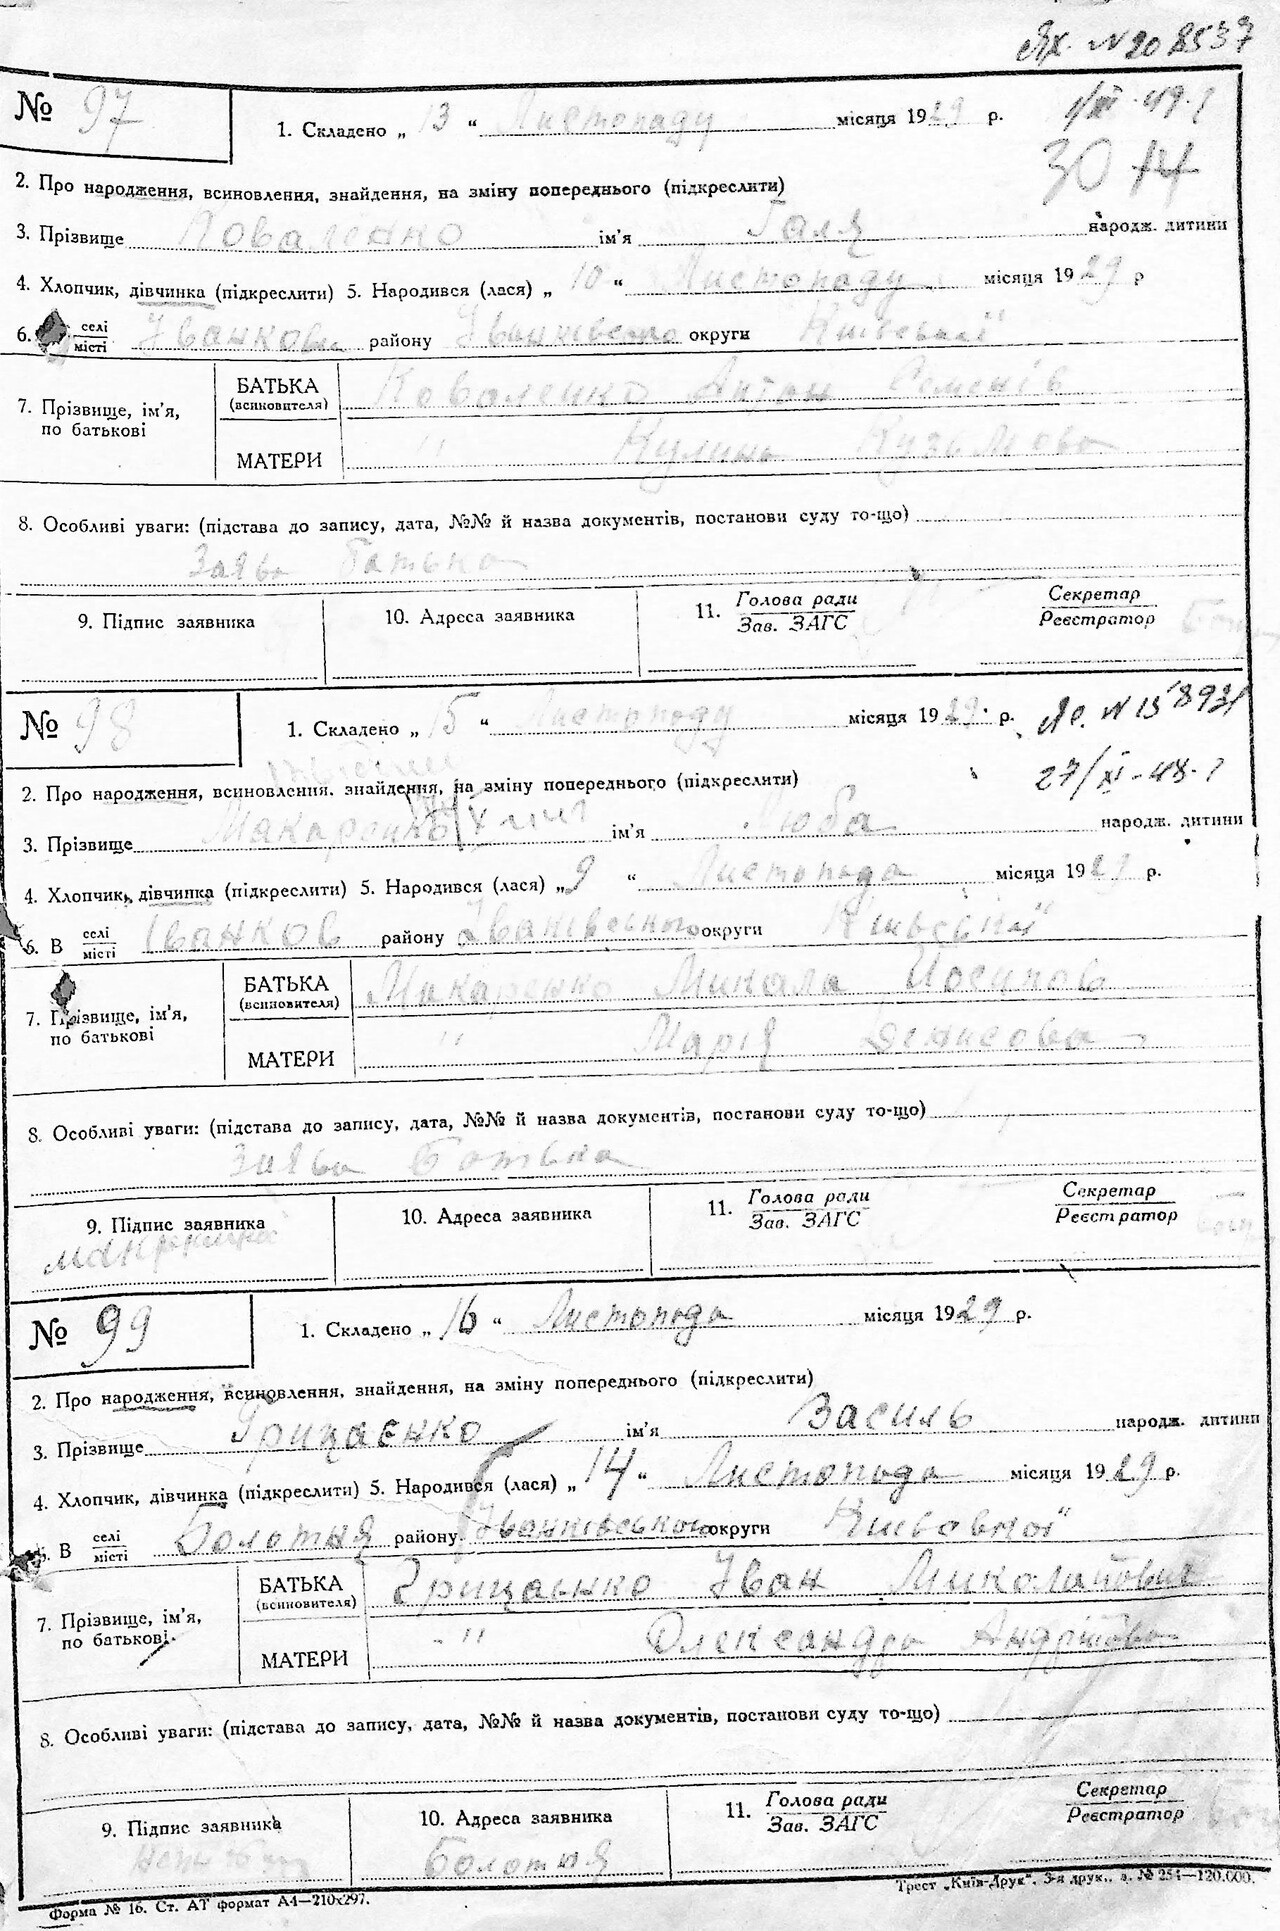 № 97
1. Складено „ 13 “ Листопаду місяця 1929 р.
2. Про народження, всиновлення, знайдення, на зміну попереднього (підкреслити)
30
3. Прізвище Коваленко ім'я Галя народж. дитини
4. Хлопчик, дівчинка (підкреслити) 5. Народився (лася) „ 10 “ Листопаду місяця 1929 р
6. селі місті Іванкові району Іванківсько округи Київської
7. Прізвище, ім'я, по батькові
БАТЬКА (всиновителя) Коваленко Антон Семенів
МАТЕРИ " Кулина Кузьмова
8. Особливі уваги: (підстава до запису, дата, №№ й назва документів, постанови суду то-що)
Заява батька
9. Підпис заявника 10. Адреса заявника 11. Голова ради Зав. ЗАГС Секретар Реєстратор
№ 98
1. Складено „ 15 “ Листопаду місяця 1929 р.
27/XI-48.
2. Про народження, всиновлення, знайдення, на зміну попереднього (підкреслити)
3. Прізвище Макаренко ім'я Люба народж. дитини
4. Хлопчик, дівчинка (підкреслити) 5. Народився (лася) „ 9 “ Листопада місяця 1929 р.
6. В селі місті Іванков району Іванківського округи Київської
7. Прізвище, ім'я, по батькові
БАТЬКА (всиновителя) Макаренко Микола Йосипов
МАТЕРИ " Марія Денисова
8. Особливі уваги: (підстава до запису, дата, №№ й назва документів, постанови суду то-що)
Заява батька
9. Підпис заявника 10. Адреса заявника 11. Голова ради Зав. ЗАГС Секретар Реєстратор
№ 99
1. Складено „ 16 “ Листопада місяця 1929 р.
2. Про народження, всиновлення, знайдення, на зміну попереднього (підкреслити)
3. Прізвище Грицаєнко ім'я Василь народж. дитини
4. Хлопчик, дівчинка (підкреслити) 5. Народився (лася) „ 14 “ Листопада місяця 1929 р.
В селі місті Болотня району Іванківського округи Київської
7. Прізвище, ім'я, по батькові
БАТЬКА (всиновителя) Грицаєнко Іван Миколайович
МАТЕРИ - " Олександра Андріїова
8. Особливі уваги: (підстава до запису, дата, №№ й назва документів, постанови суду то-що)
9. Підпис заявника 10. Адреса заявника 11. Голова ради Зав. ЗАГС Секретар Реєстратор
Болотня
Форма № 16. Ст. АТ формат А4—210х297.
Трест „Київ-Друк“. 3-я друк., з. № 254—120.000.